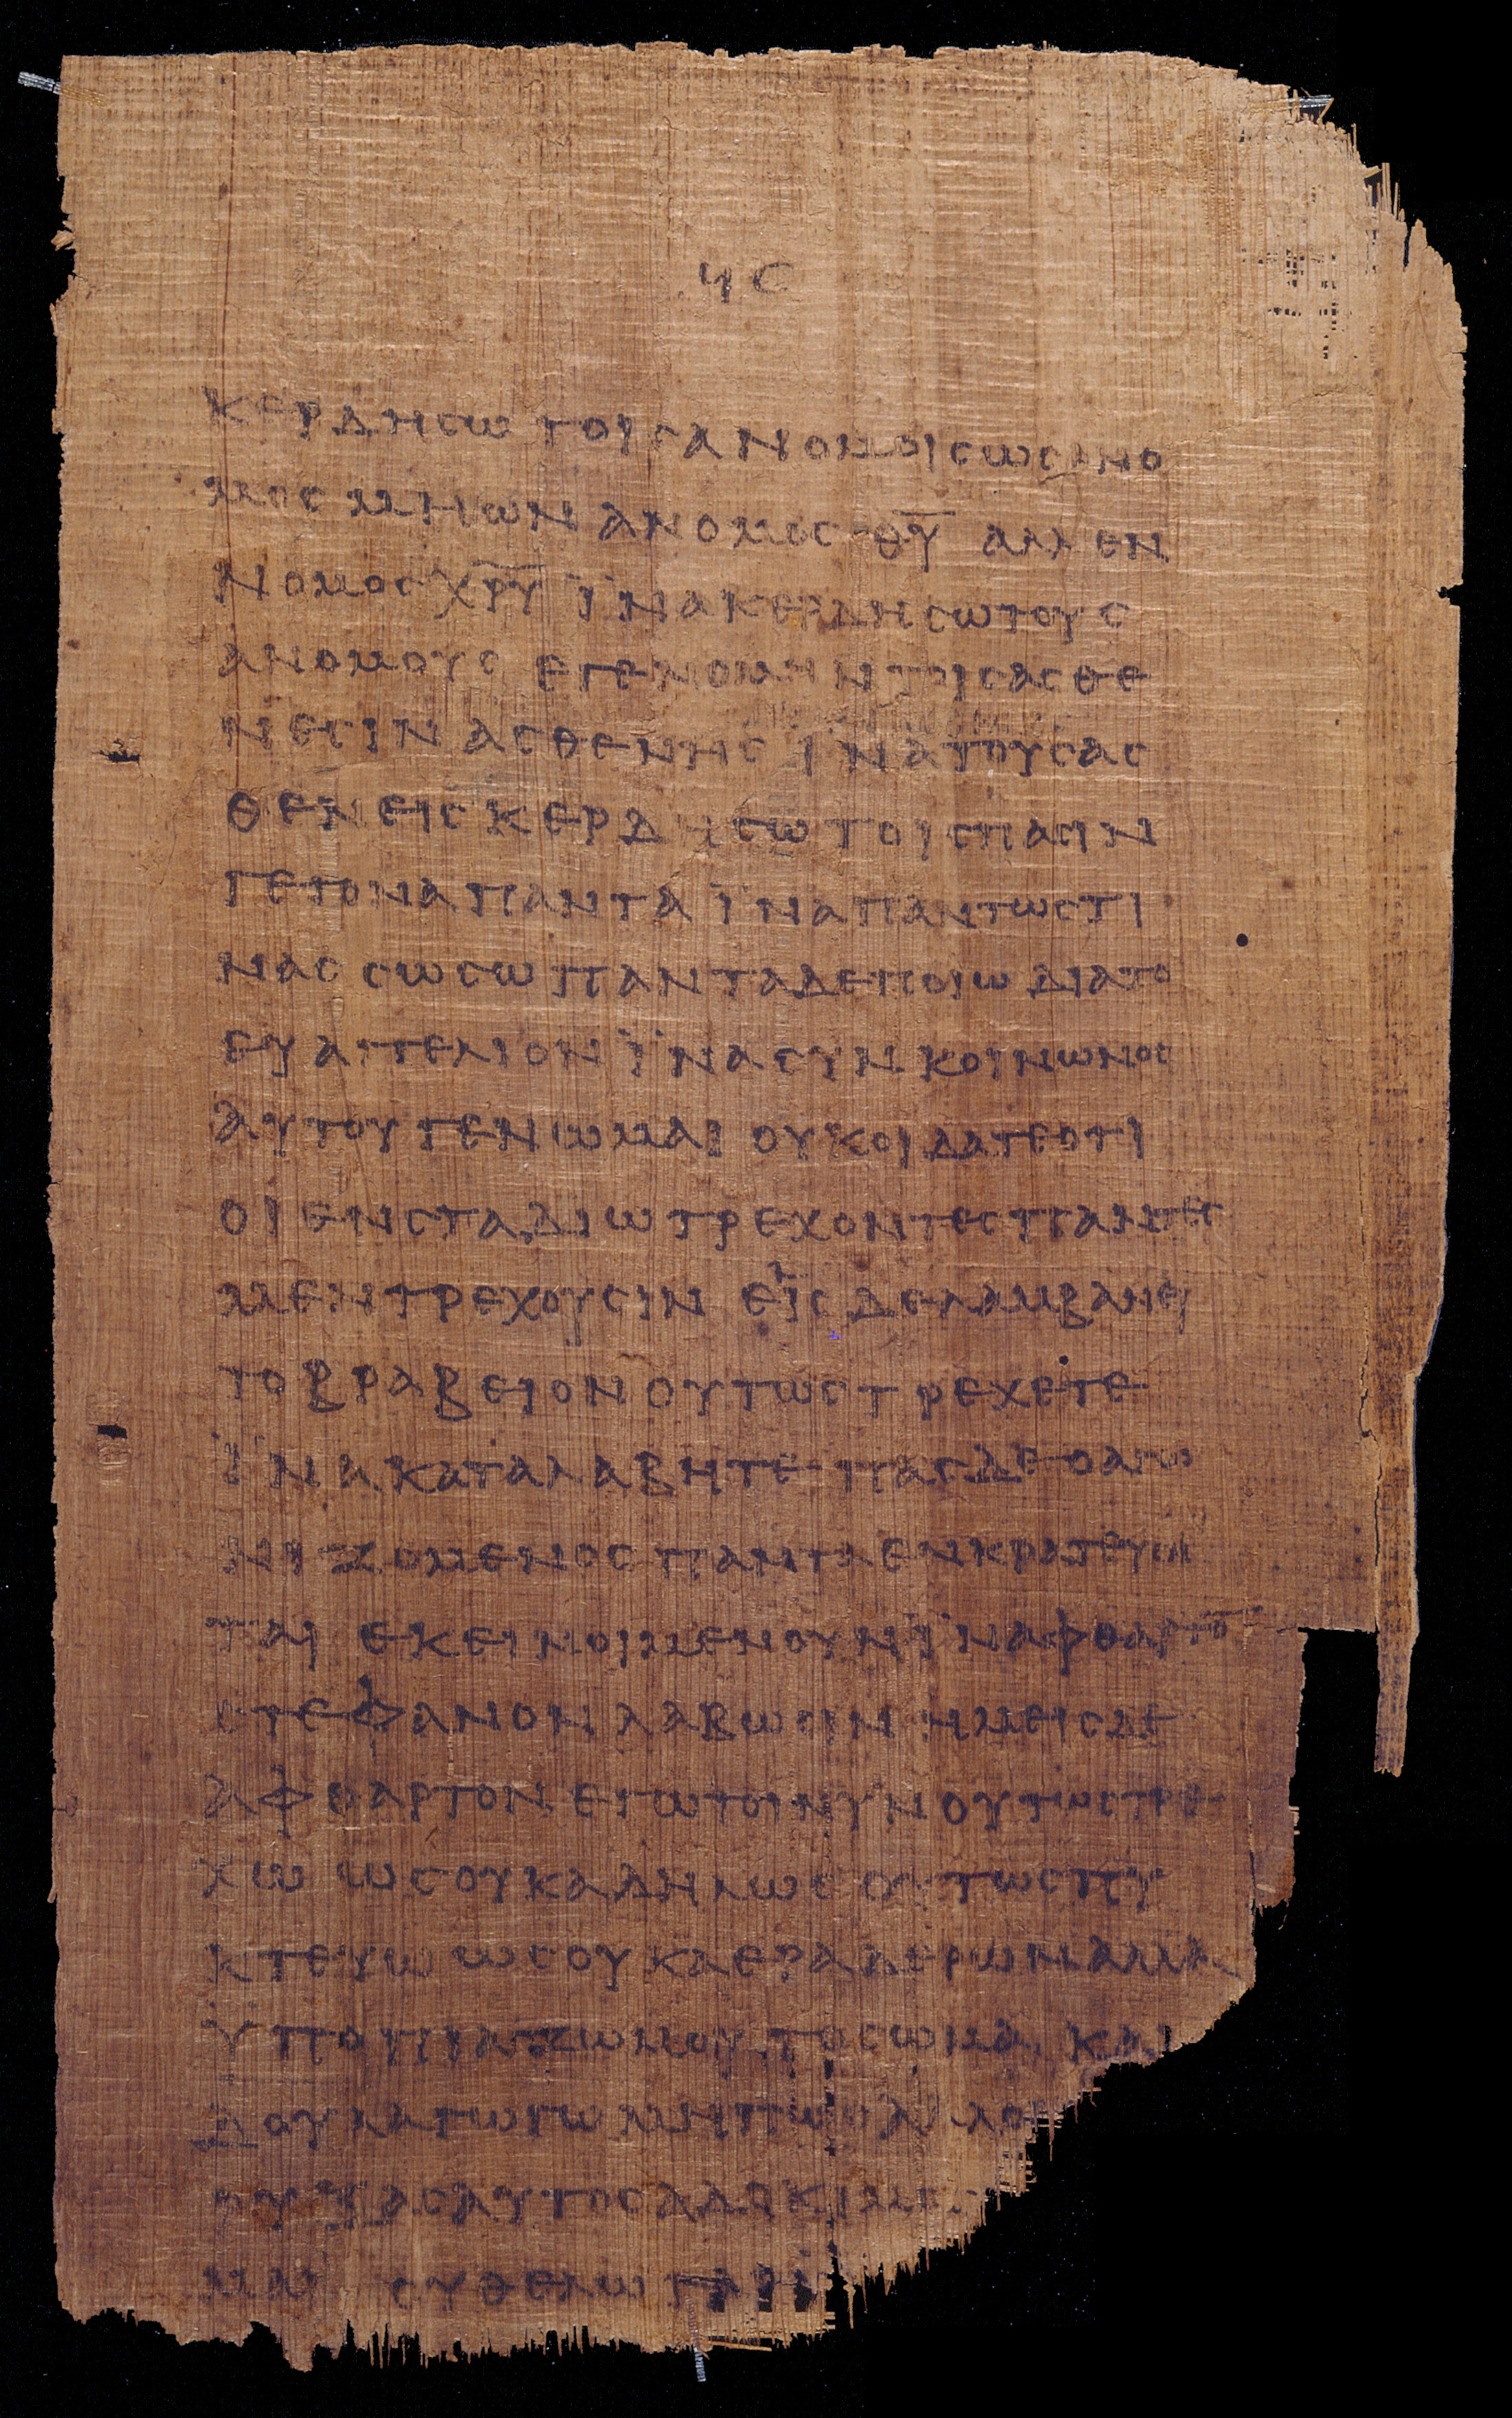 ϥϲ
κερδηϲω τοιϲανομοιϲωϲανο
μοϲμηων ανομοϲθ̅υ̅ αλλεν
νομοϲχ̅ρ̅υ̅ ϊνακερδηϲωτουϲ
ανομουϲ εγενομηντοιϲαϲθε
νεϲιν αϲθενηϲ ϊνατουϲαϲ
θενειϲκερδηϲωτοιϲπαϲιν
γεγοναπανταϊναπαντωϲτι
ναϲϲωϲωπανταδεποιωδιατο
ευαγγελιονϊναϲυνκοινωνοϲ
αυτουγενωμαι ουκοιδατεοτι
οιενϲταδιωτρεχοντεϲπαντεϲ
μεντρεχουϲιν ειϲδελαμβανει
τοβραβειονουτωϲτρεχετε
ϊνακαταλαβητεπαϲδεοαγω
νιζομενοϲπανταενκρατευε
ται εκεινοιμενουνϊναφθαρτο̅
ϲτεφανονλαβωϲινημειϲδε
αφθαρτονεγωτοινυνουτωϲτρε
χωωϲουκαδηλωϲουτωϲπυ
κτευωωϲουκαεραδερωναλλα
ϋποπιαζωμουτοϲωμακαι
δουλαγωγωμηπωϲαλλοι
κηρυξαϲαυτοϲαδοκιμο
μαι ουθελωγαρ